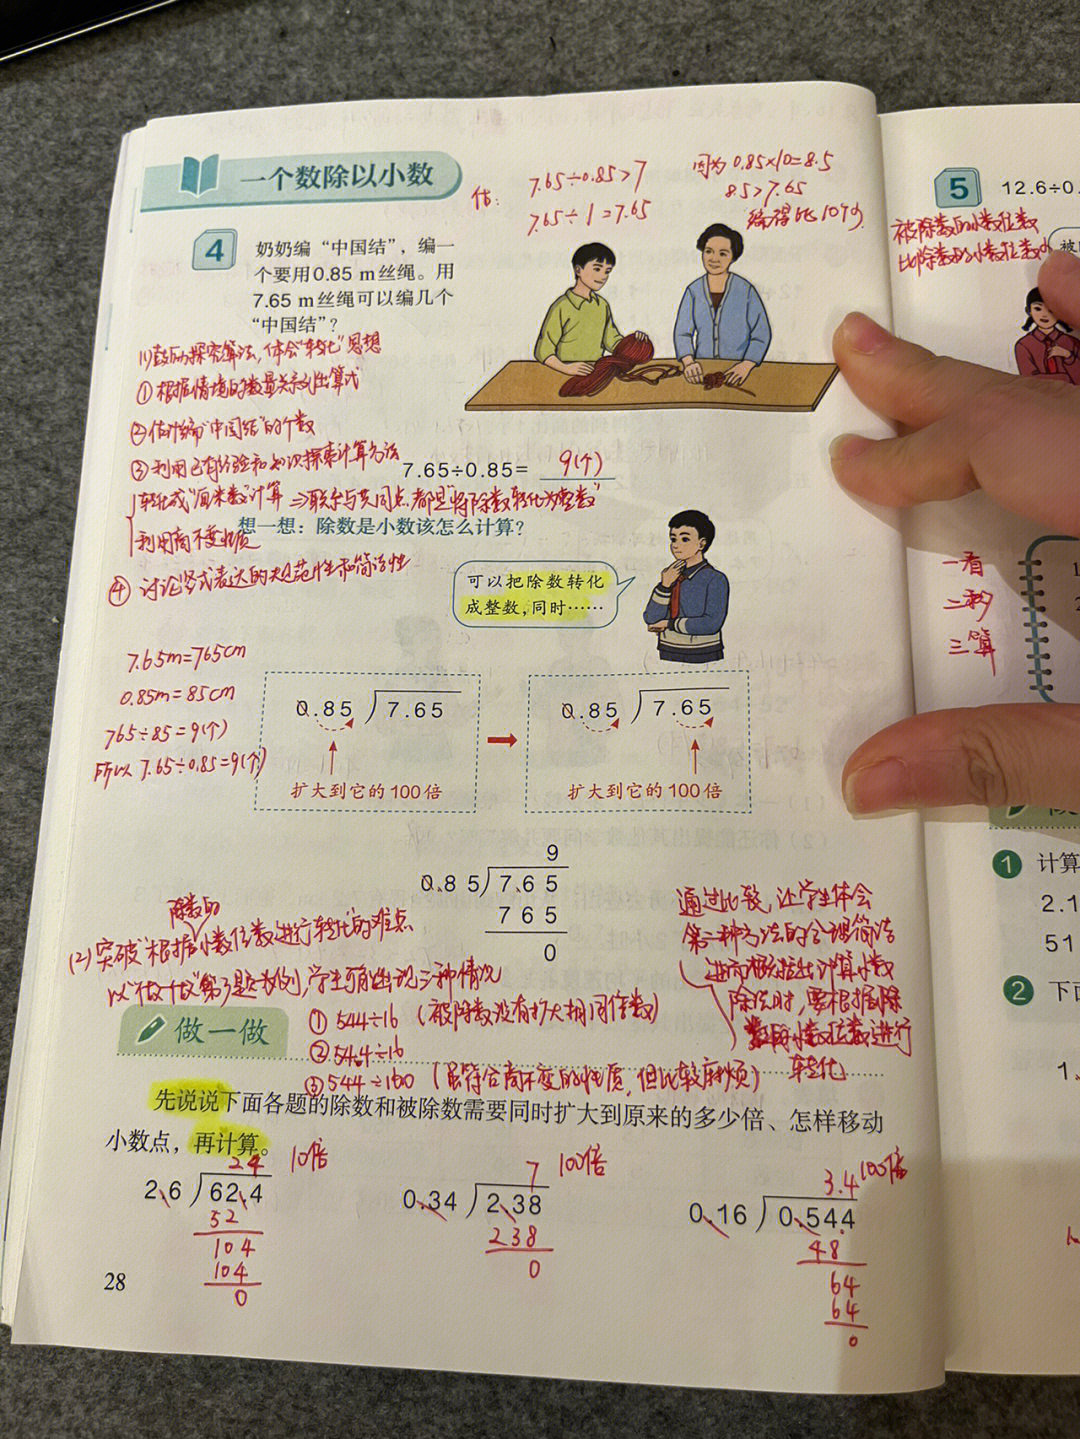 一个数除以小数
估: 7.65÷0.85>7
7.65÷1=7.65
因为 0.85×10=8.5
8.5>7.65
编得比10个少
4
奶奶编“中国结”，编一
个要用0.85 m丝绳。用
7.65 m丝绳可以编几个
“中国结”？
(1)鼓励探究算法,体会“转化”思想
①根据情境的数量关系列出算式
②估计编“中国结”的个数
③利用已有经验和知识探索计算方法
7.65÷0.85= 9(个)
转化成“厘米数”计算 ⇒联系与共同点:都是“将除数转化为整数”
想一想：除数是小数该怎么计算？
利用商不变性质
④讨论竖式表达的规范性和简洁性
可以把除数转化
成整数，同时……
7.65m=765cm
0.85m=85cm
765÷85=9(个)
所以 7.65÷0.85=9(个)
0.85 7.65
扩大到它的100倍
0.85 7.65
扩大到它的100倍
9
0.85 7.65
765
0
除数的
(2)突破“根据小数位数进行转化”的难点
以“做一做”第3题为例,学生可能出现三种情况
①544÷16 (被除数没有扩大相同倍数)
②54.4÷16
③544÷160 (虽符合商不变的性质,但比较麻烦)
通过比较,让学生体会
第二种方法的合理简洁
进而概括出计算小数
除法时,要根据除
数的小数位数进行
转化
做一做
先说说下面各题的除数和被除数需要同时扩大到原来的多少倍、怎样移动
小数点，再计算。
24 10倍
2.6 62.4
52
104
104
0
7 100倍
0.34 2.38
238
0
3.4 100倍
0.16 0.544
48
64
64
0
28
5
12.6÷0.
被除数的小数位数
比除数的小数位数少
被
一看
二移
三算
1
计算
2.1
51
2
下面
1.